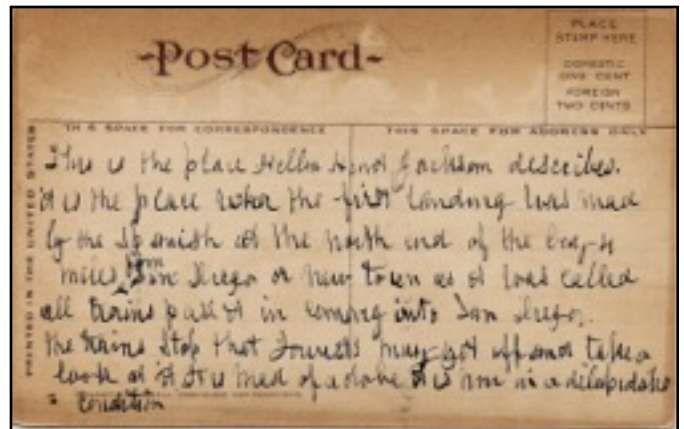 -Post Card-
PLACE
STAMP HERE
DOMESTIC
ONE CENT
FOREIGN
TWO CENTS
THIS SPACE FOR CORRESPONDENCE
THIS SPACE FOR ADDRESS ONLY
PRINTED IN THE UNITED STATES
This is the place Hellen Hunt Jackson describes.
it is the place wher the first landing was mad
by the Spanish at the north end of the bay 4
miles from San Diego or new town as it was called
all trains pass it in coming into San Diego.
the trains stop that tourists may get off and take a
look at it It is mad of adobe it is now in a dilapidated
condition